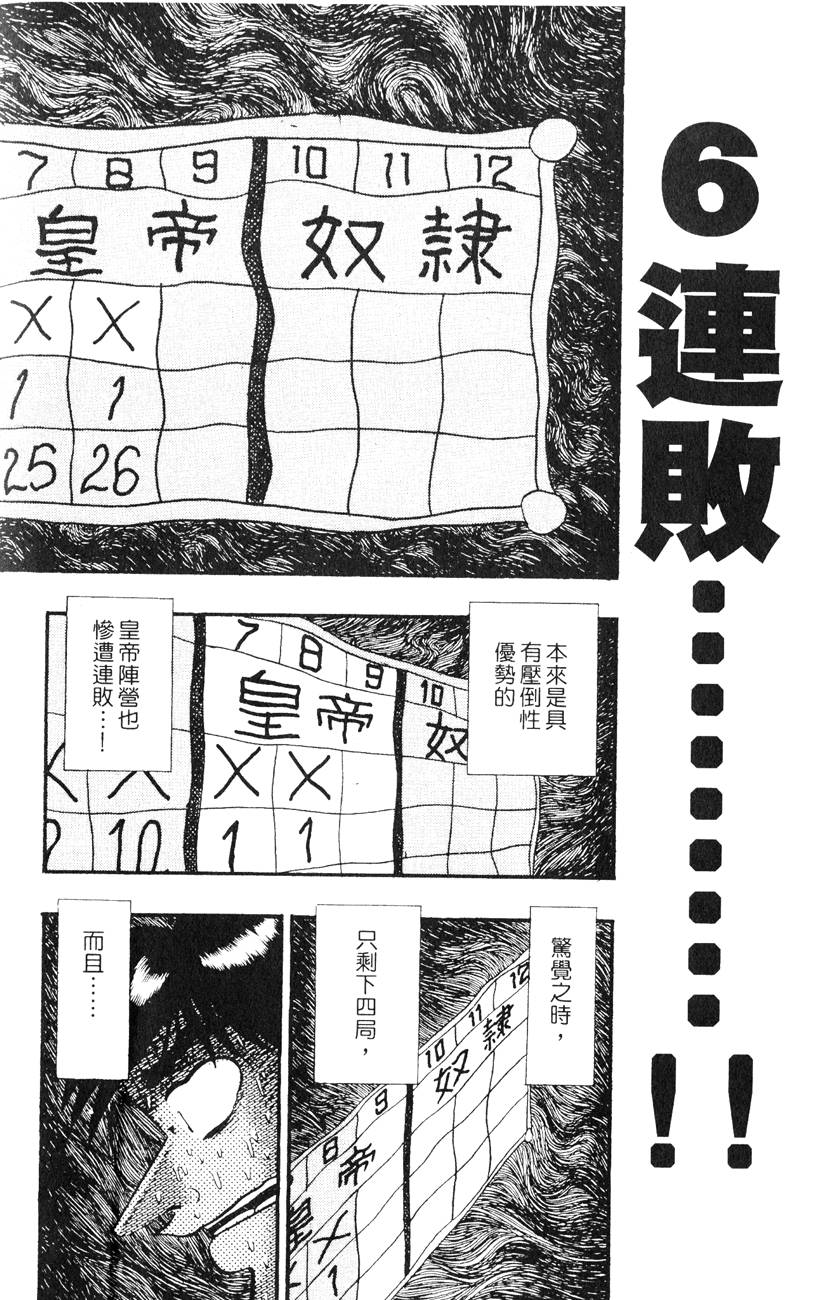 6連敗………!!
7 8 9 10 11 12
皇帝 奴隸
X X
1 1
25 26
本來是具
有壓倒性
優勢的
皇帝陣營也
慘遭連敗…!
7 8 9 10
皇帝 奴
X X X X
10 1 1
驚覺之時,
只剩下四局,
8 9 10 11 12
皇帝 奴隸
X
1
而且……